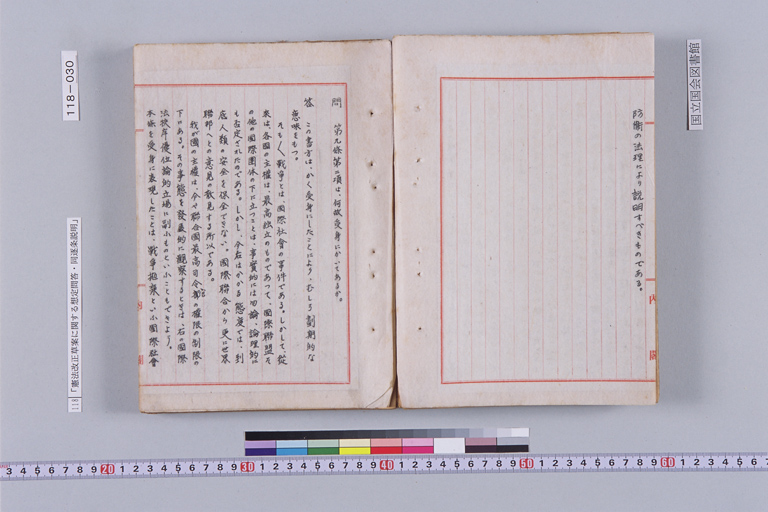 防衛の法理により説明すべきものである。
内閣
問 第九條第二項は、何故受身にかいてあるか。
答 この書方は、かく受身にしたことにより、むしろ劃期的な
意味をもつ。
そもそも、戰爭とは、國際社會の事件である。しかして、從
來は、各國の主權は、最高独立のものであつて、國際聯盟そ
の他の國際團体の下に立つことは、事實的には勿論、論理的に
も否定されたのである。しかし、今后はかかる態度では、到
底人類の安全を保全できない。國際聯合から更に世界
聯邦への意見の散見する所以である。
我が國の主權は、今や聯合國最高司令部の權限の制限の
下にある。その事態を發展的に觀察するときは、右の國際
法秩序優位論的立場に副ふものといふこともできよう。
本條を受身に表現したことは、戰爭抛棄といふ國際社會
内閣
国立国会図書館
118-030
118 「憲法改正草案に関する想定問答・同逐条説明」
3 4 5 6 7 8 9 20 1 2 3 4 5 6 7 8 9 30 1 2 3 4 5 6 7 8 9 40 1 2 3 4 5 6 7 8 9 50 1 2 3 4 5 6 7 8 9 60 1 2 3 4 5 6 7